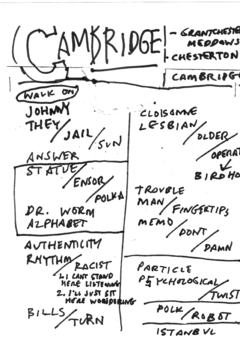 CAMBRIDGE
GRANTCHESTER
MEADOWS
CHESTERTON
CAMBRIDG
WALK ON
JOHNNY
THEY/JAIL/SUN
ANSWER
STATUE/ENSOR/POLKA
DR. WORM
ALPHABET
AUTHENTICITY
RHYTHM/RACIST
1. I CANT STAND
HERE LISTENING
2. I'LL JUST SIT
HERE WONDERING
BILLS/TURN
CLOISONNE
LESBIAN/OLDER/OPERAT
BIRDHO
TROUBLE
MAN/FINGERTIPS
MEMO/DONT/DAMN
PARTICLE
PSYCHOLOGICAL/TWIST
POLK/ROBOT
ISTANBUL